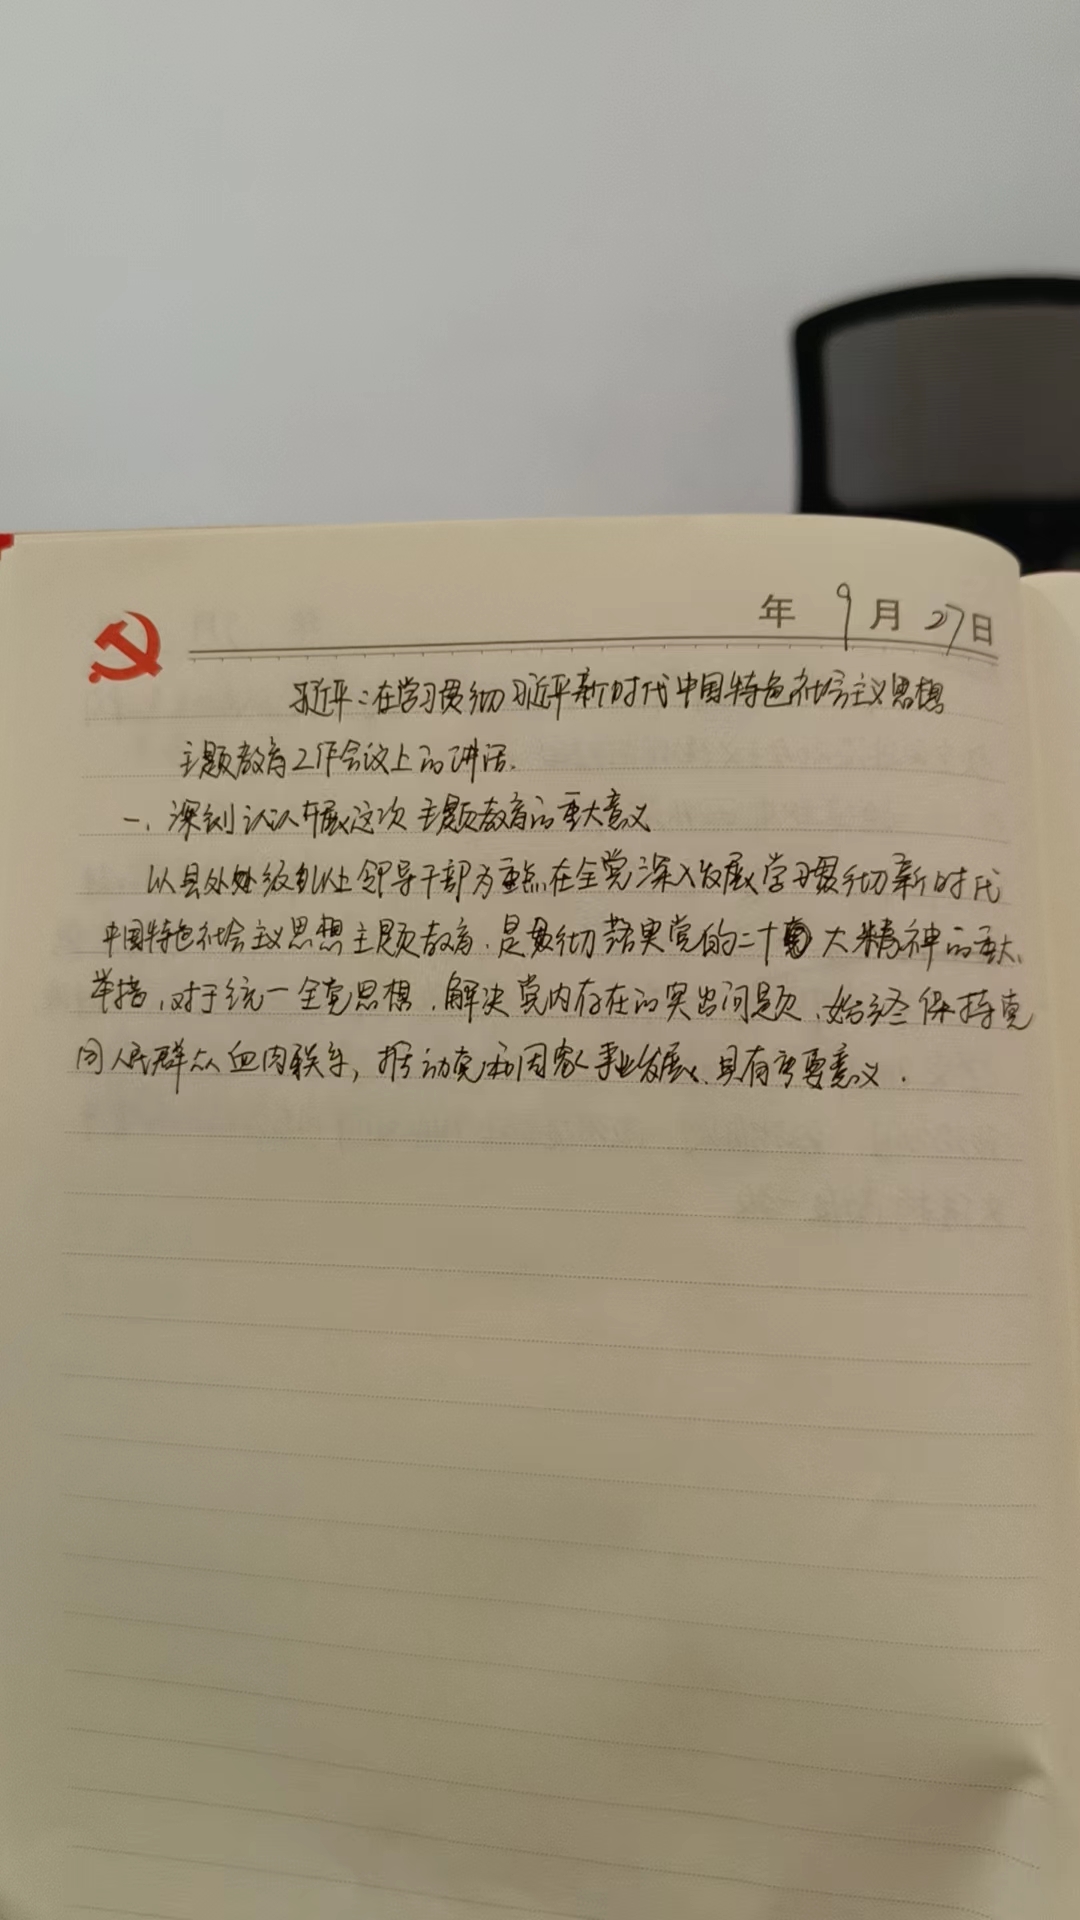 年 9月27日
习近平：在学习贯彻习近平新时代中国特色社会主义思想
主题教育工作会议上的讲话.
一、深刻认认开展这次主题教育的重大意义
以县处级以上领导干部为重点在全党深入发展学习贯彻新时代
中国特色社会主义思想主题教育.是贯彻落实党的二十大精神的重大、
举措,对于统一全党思想.解决党内存在的突出问题.始终保持党
同人民群众血肉联系,推动党和国家事业发展.具有重要意义.